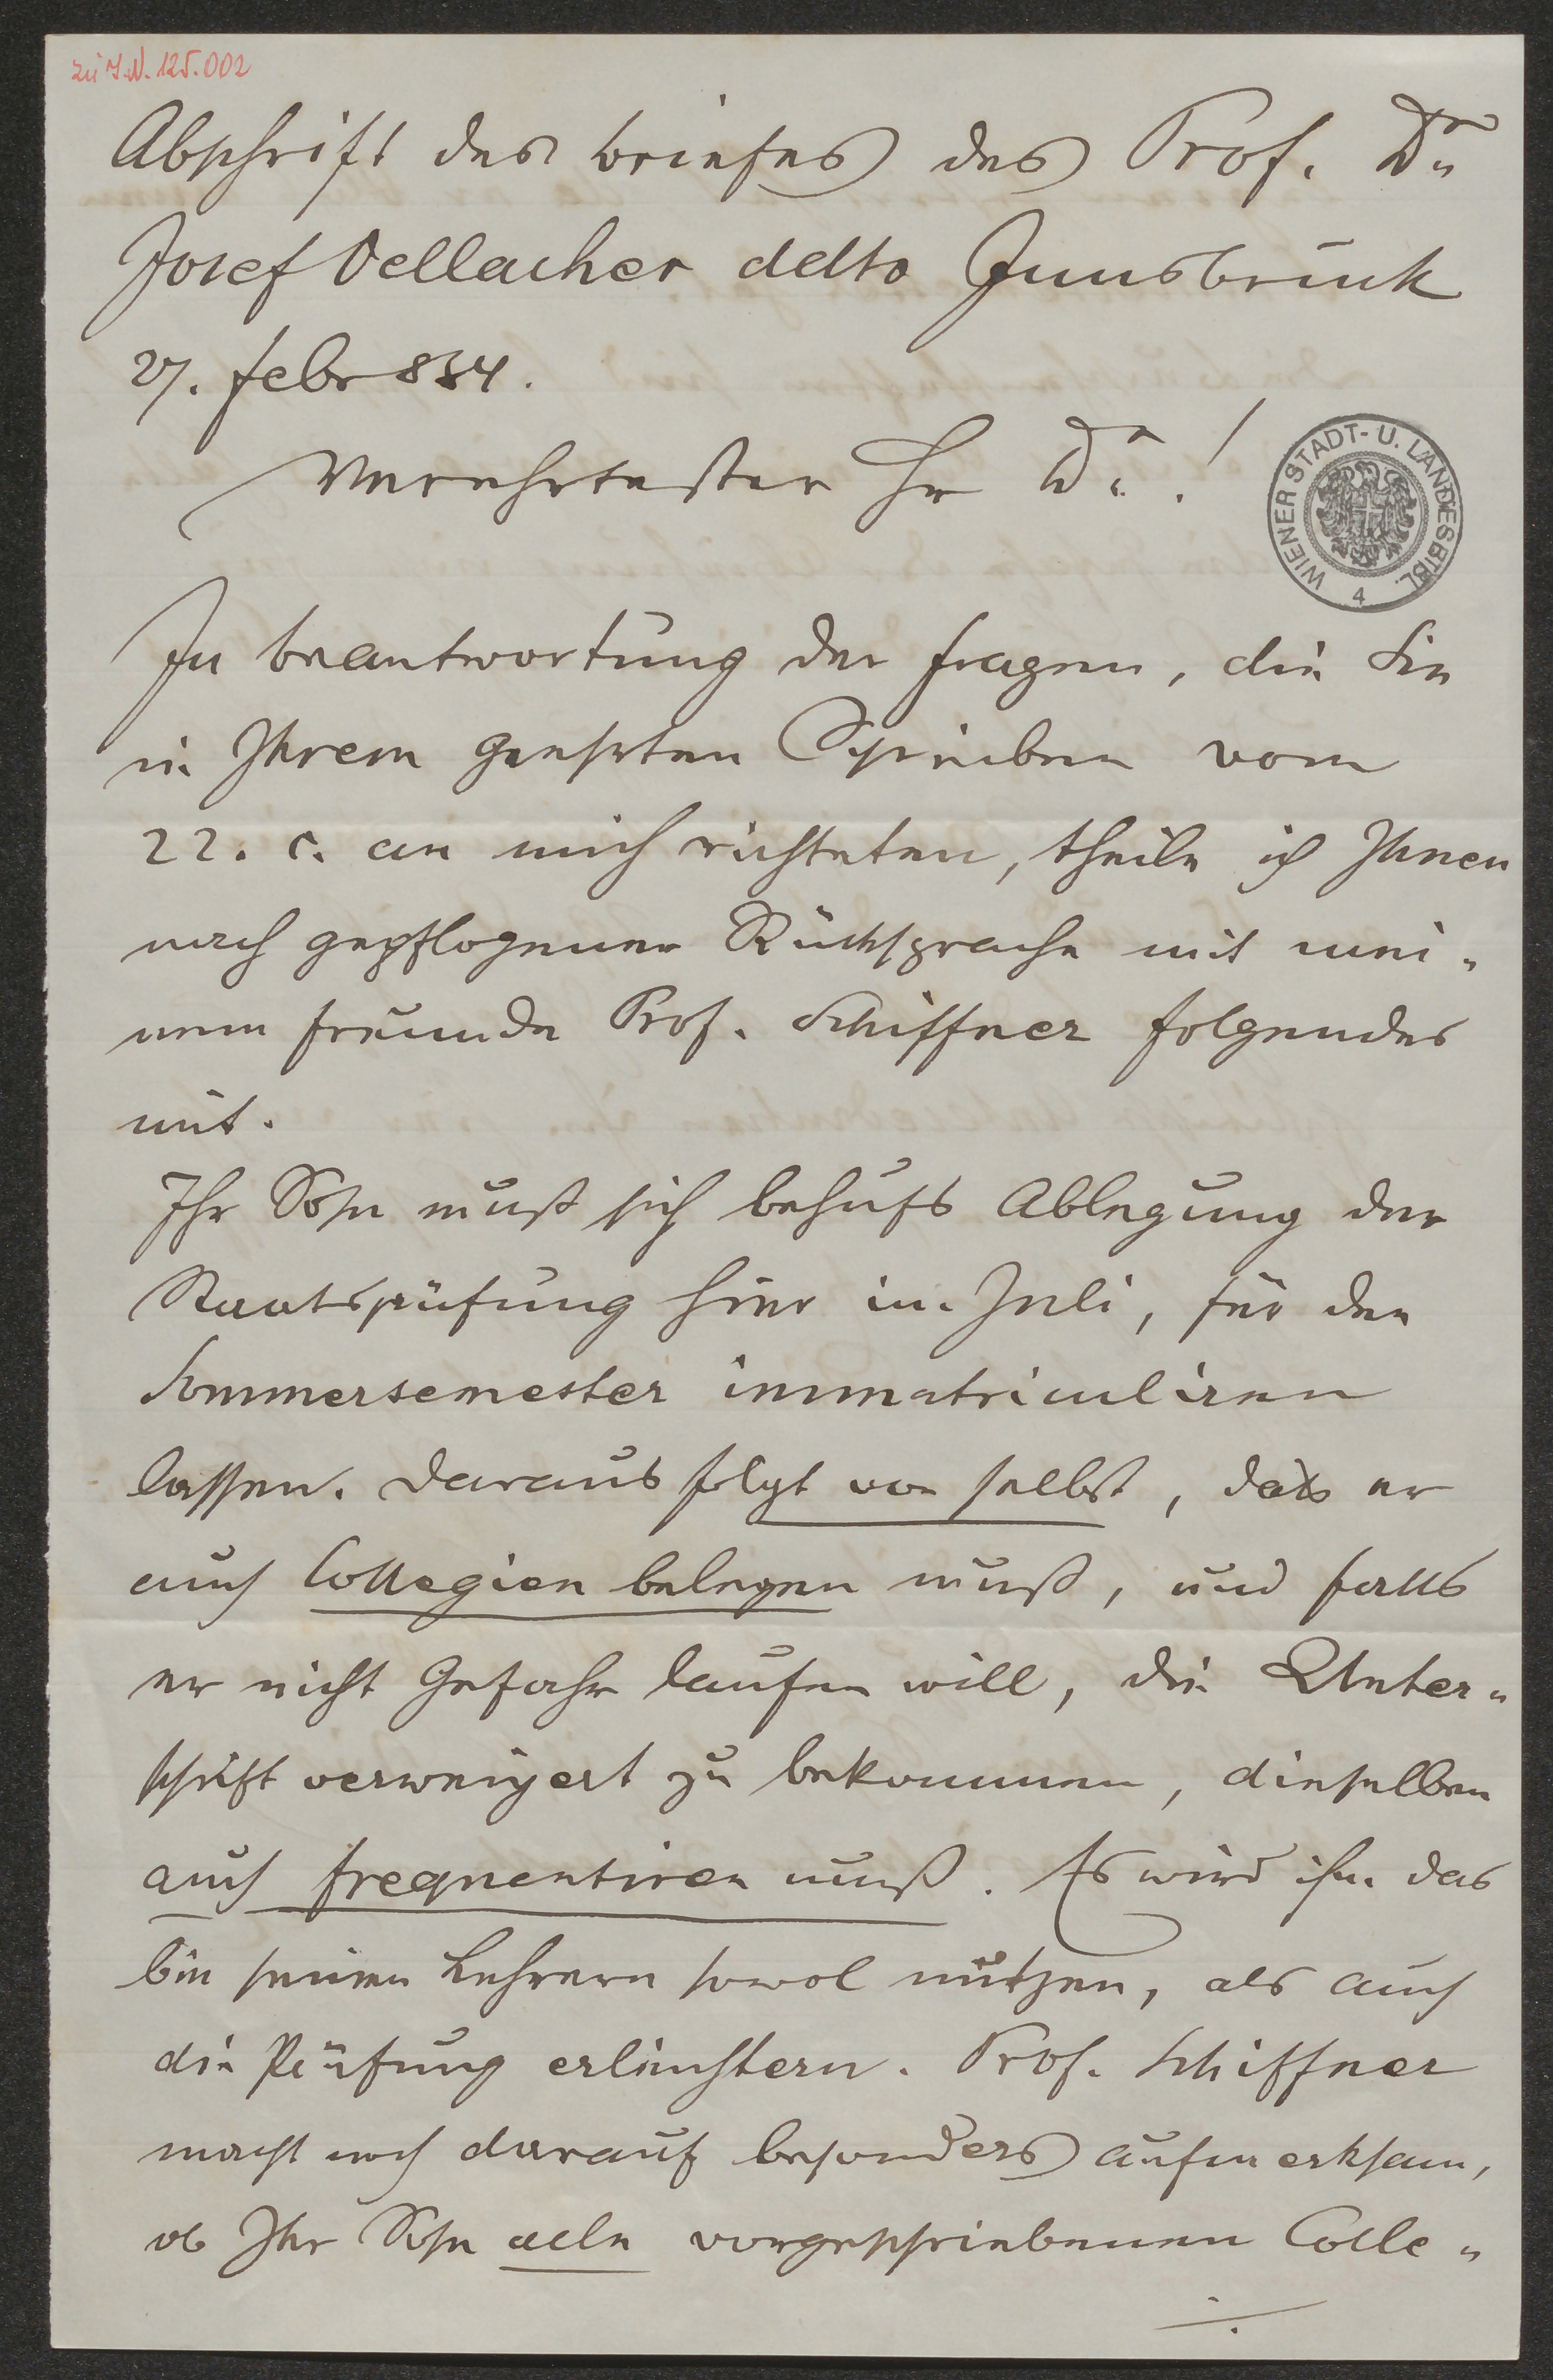 zu I.N. 125.002
Abschrift des briefes des Prof. Dr.
Josef Oellacher ddto Innsbruck
27. febr 884.
Verehrtester Hr Dr.!
WIENER STADT- U. LANDESBIBL.
4
In beantwortung der fragen, die Sie
in Ihrem geehrten Schreiben vom
22. c. an mich richteten, theile ich Ihnen
nach gepflogener Rücksprache mit mei-
nem freunde Prof. Schiffner folgendes
mit.
Ihr Sohn muß sich behufs Ablegung der
Staatsprüfung hier im Juli, für den
Sommersemester immatriculiren
lassen. Daraus folgt von selbst, dass er
auch Collegien belegen muß, und falls
er nicht Gefahr laufen will, die Unter-
schrift verweigert zu bekommen, dieselben
auch frequentiren muß. Es wird ihm das
bei seinen Lehrern sowol nützen, als auch
die Prüfung erleichtern. Prof. Schiffner
macht noch darauf besonders aufmerksam,
ob Ihr Sohn alle vorgeschriebenen Colle-
./.